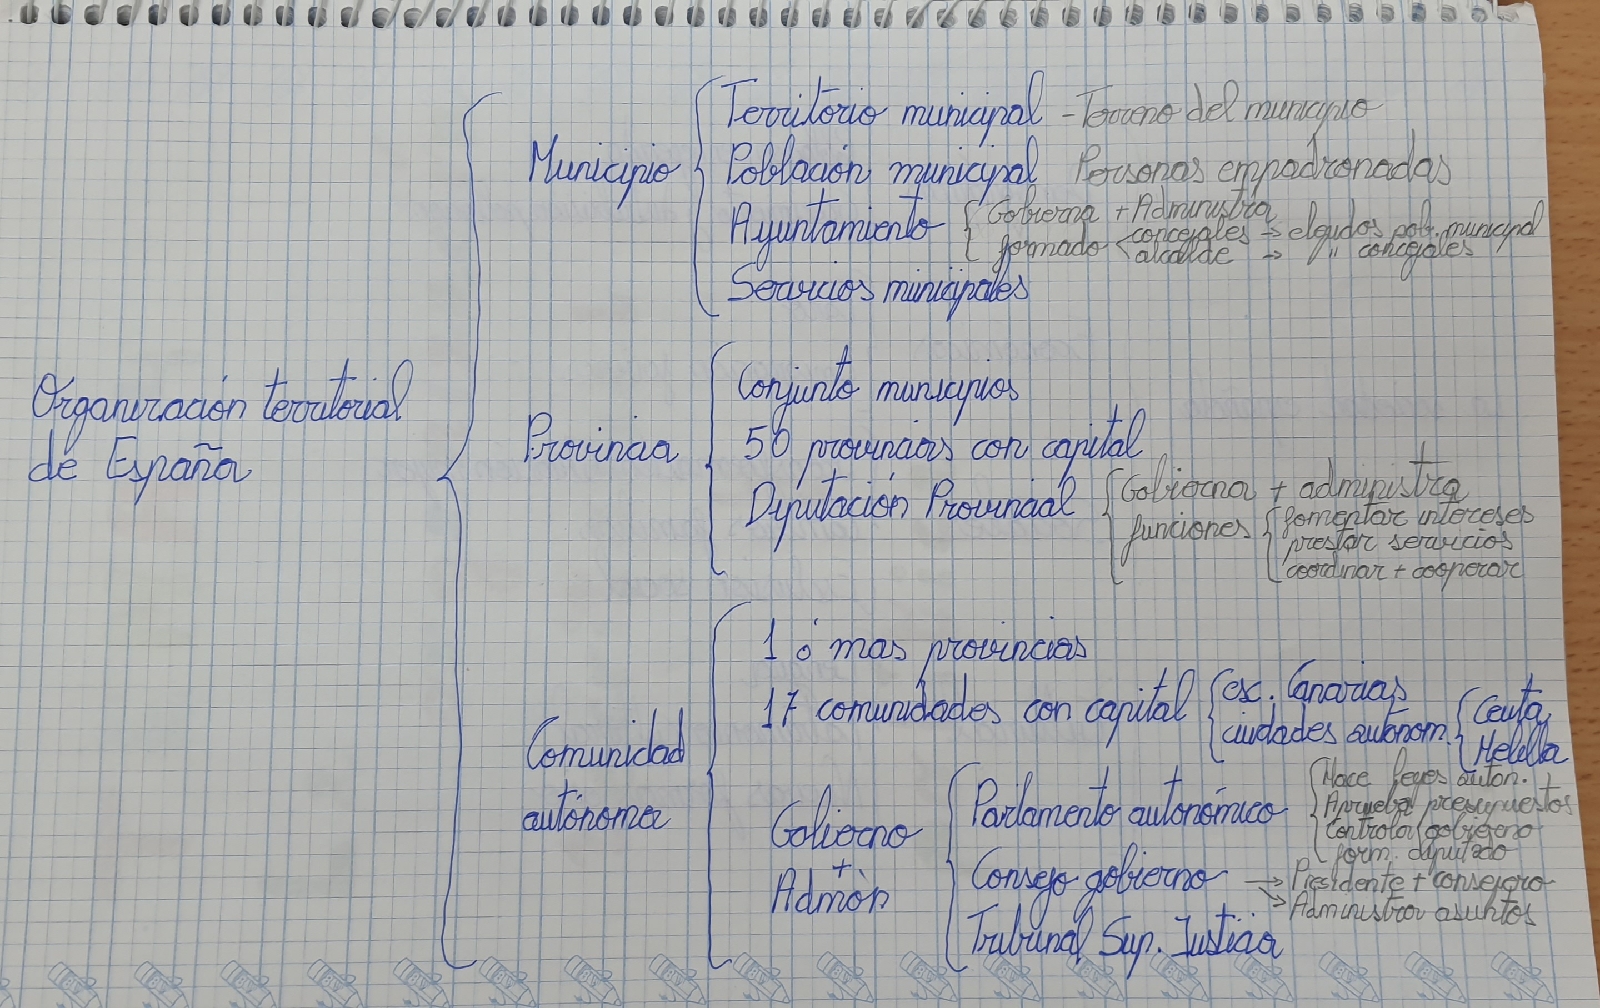 Territorio municipal - Terreno del municipio
Municipio
Población municipal Personas empadronadas
Ayuntamiento
Gobierna + Administra
formado
concejales → elegidos pob. municipal
alcalde → " concejales
Servicios municipales
Organización territorial
de España
Provincia
Conjunto municipios
50 provincias con capital
Diputación Provincial
Gobierna + administra
funciones
fomentar intereses
prestar servicios
coordinar + cooperar
Comunidad
autónoma
1 ó mas provincias
17 comunidades con capital
exc. Canarias
ciudades autónom.
Ceuta
Melilla
Gobierno
+
Admón
Parlamento autonómico
Hace leyes autón.
Aprueba presupuestos
Controla gobierno
form. diputado
Consejo gobierno
→ Presidente + consejero
→ Administrar asuntos
Tribunal Sup. Justicia